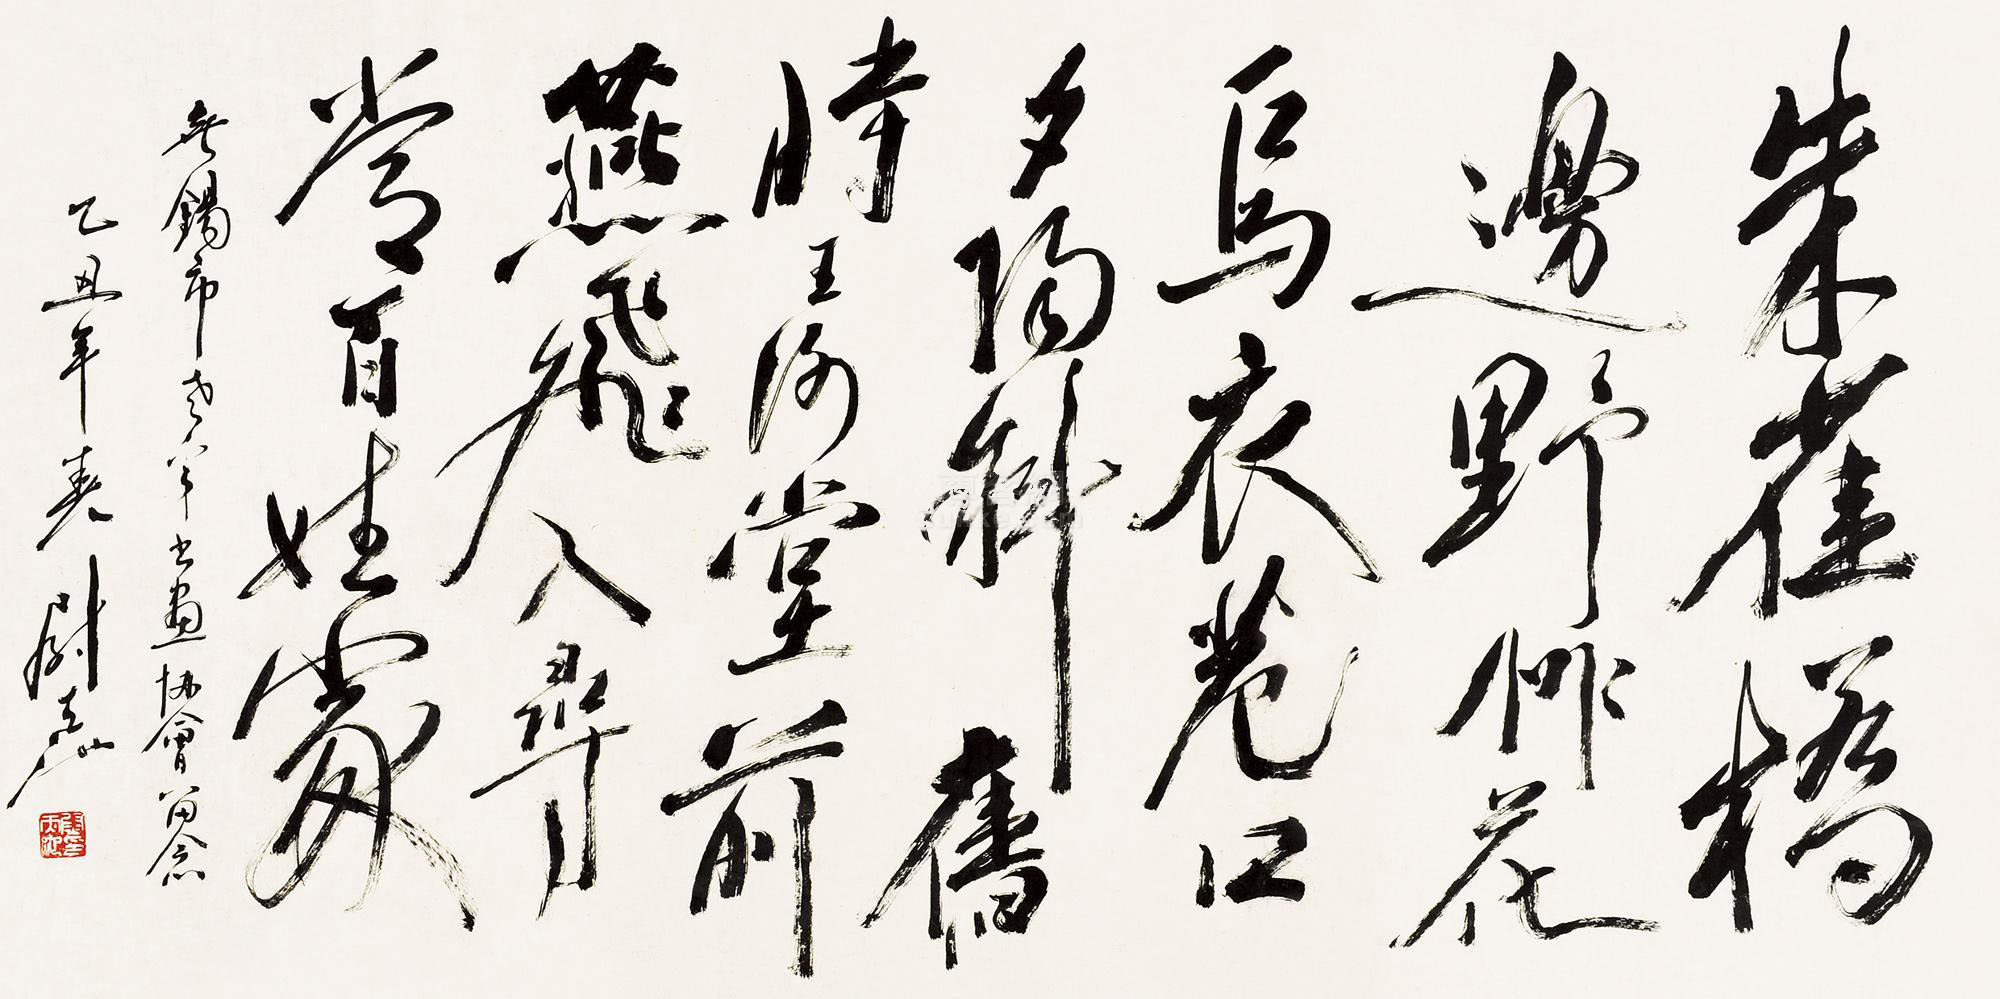 朱雀橋
邊野艸花
烏衣巷口
夕陽斜舊
時王謝堂前
燕飛入尋
常百姓家
無錫市老年書畫協會留念
乙丑年春尉天池